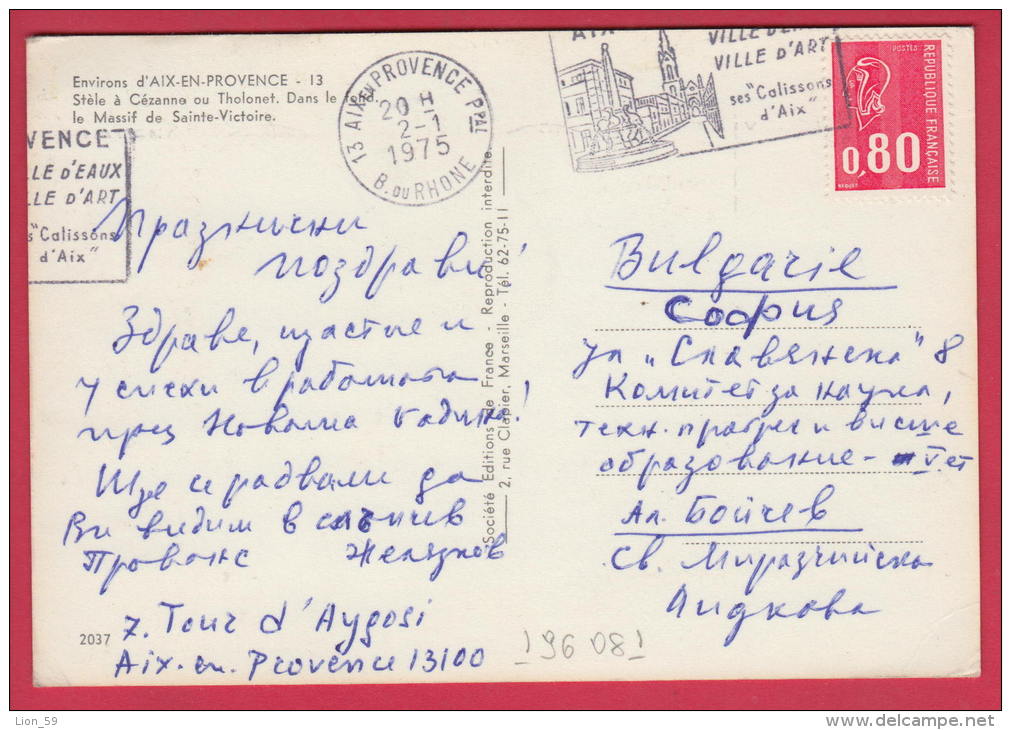 Environs d'AIX-EN-PROVENCE - 13
Stèle à Cézanne ou Tholonet. Dans le fond
le Massif de Sainte-Victoire.
13 AIX en PROVENCE Ppal
20 H
2-1
1975
B. DU RHONE
AIX
VILLE D'EAUX
VILLE D'ART
ses "Calissons
d'Aix"
POSTES
RÉPUBLIQUE FRANÇAISE
0,80
VENCE
LLE D'EAUX
LLE D'ART
s "Calissons
d'Aix"
Празнични
поздрави!
Здраве, щастие и
успехи в работата
през Новата година!
Ще се радваме да
Ви видим в слънчев
Прованс Желязков
7. Tour d'Aygosi
Aix-en-Provence 13100
2037
Société Editions de France - Reproduction interdite
2, rue Clapier, Marseille - Tél. 62-75-11
Bulgarie
София
ул "Славянска" 8
Комитет за наука,
техн. прогрес и висше
образование - V ет
Ал. Бойчев
Св.
19608
Lion_59
http://www.delcampe.net